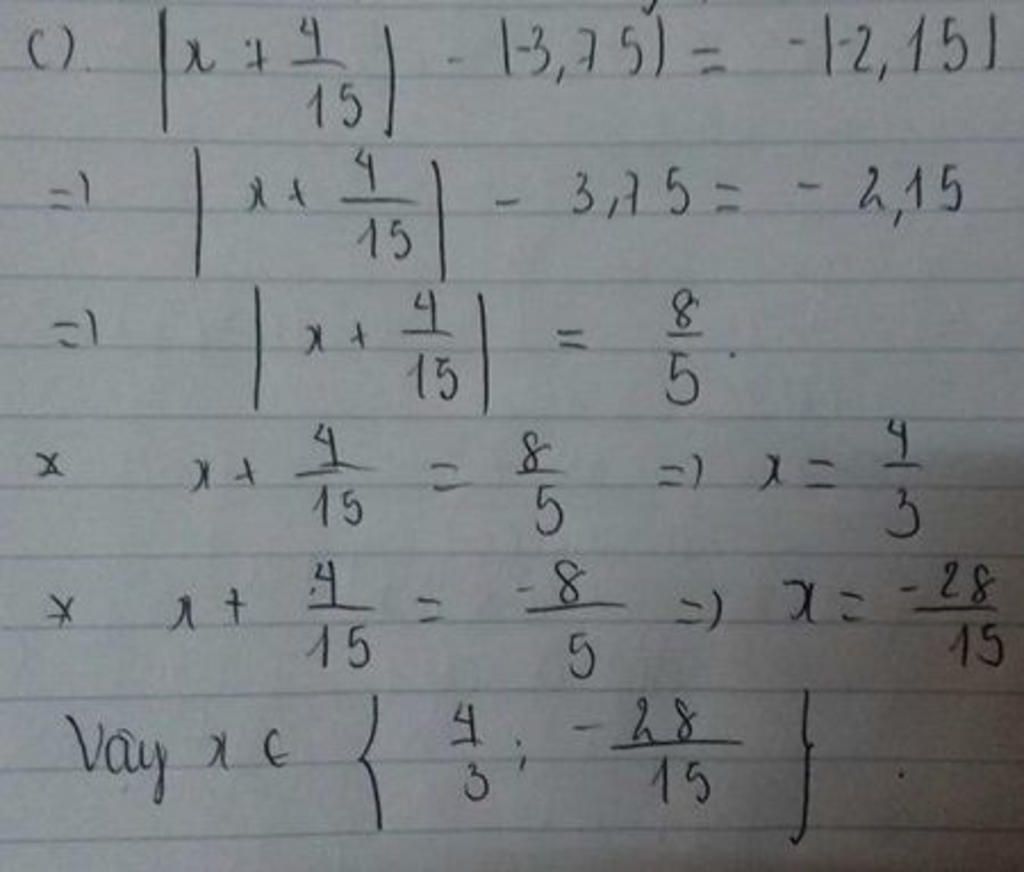 c). |x + 4/15| - |-3,75| = -|-2,15|
=> |x + 4/15| - 3,75 = - 2,15
=> |x + 4/15| = 8/5.
* x + 4/15 = 8/5 => x = 4/3
* x + 4/15 = -8/5 => x = -28/15
Vậy x ∈ { 4/3 ; -28/15 } .